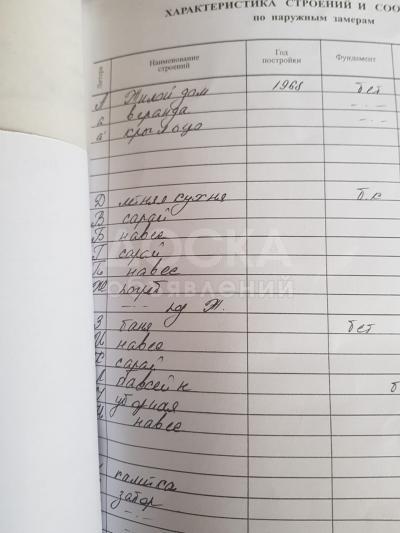 ХАРАКТЕРИСТИКА СТРОЕНИЙ И СОО
по наружным замерам
Литера Наименование строений Год постройки Фундамент
А Жилой дом 1968 бет
а веранда -"-
а крыльцо -"-
Д летняя кухня б.к
В сарай
Б навес
Г сарай
навес
Ж погреб
Ж.
З баня бет
И навес
К сарай
Л бассейн б
уборная
навес
калитка
забор
ДОСКА
ОБЪЯВЛЕНИЙ